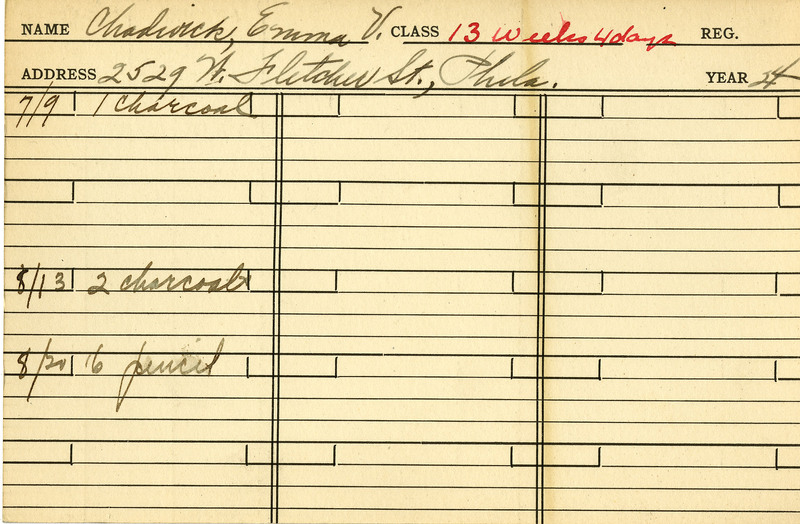 NAME Chadwick, Emma V. CLASS 13 weeks 4 days REG.
ADDRESS 2529 W. Fletcher St., Phila. YEAR 24
7/9 1 charcoal
8/13 2 charcoals
8/20 6 pencil